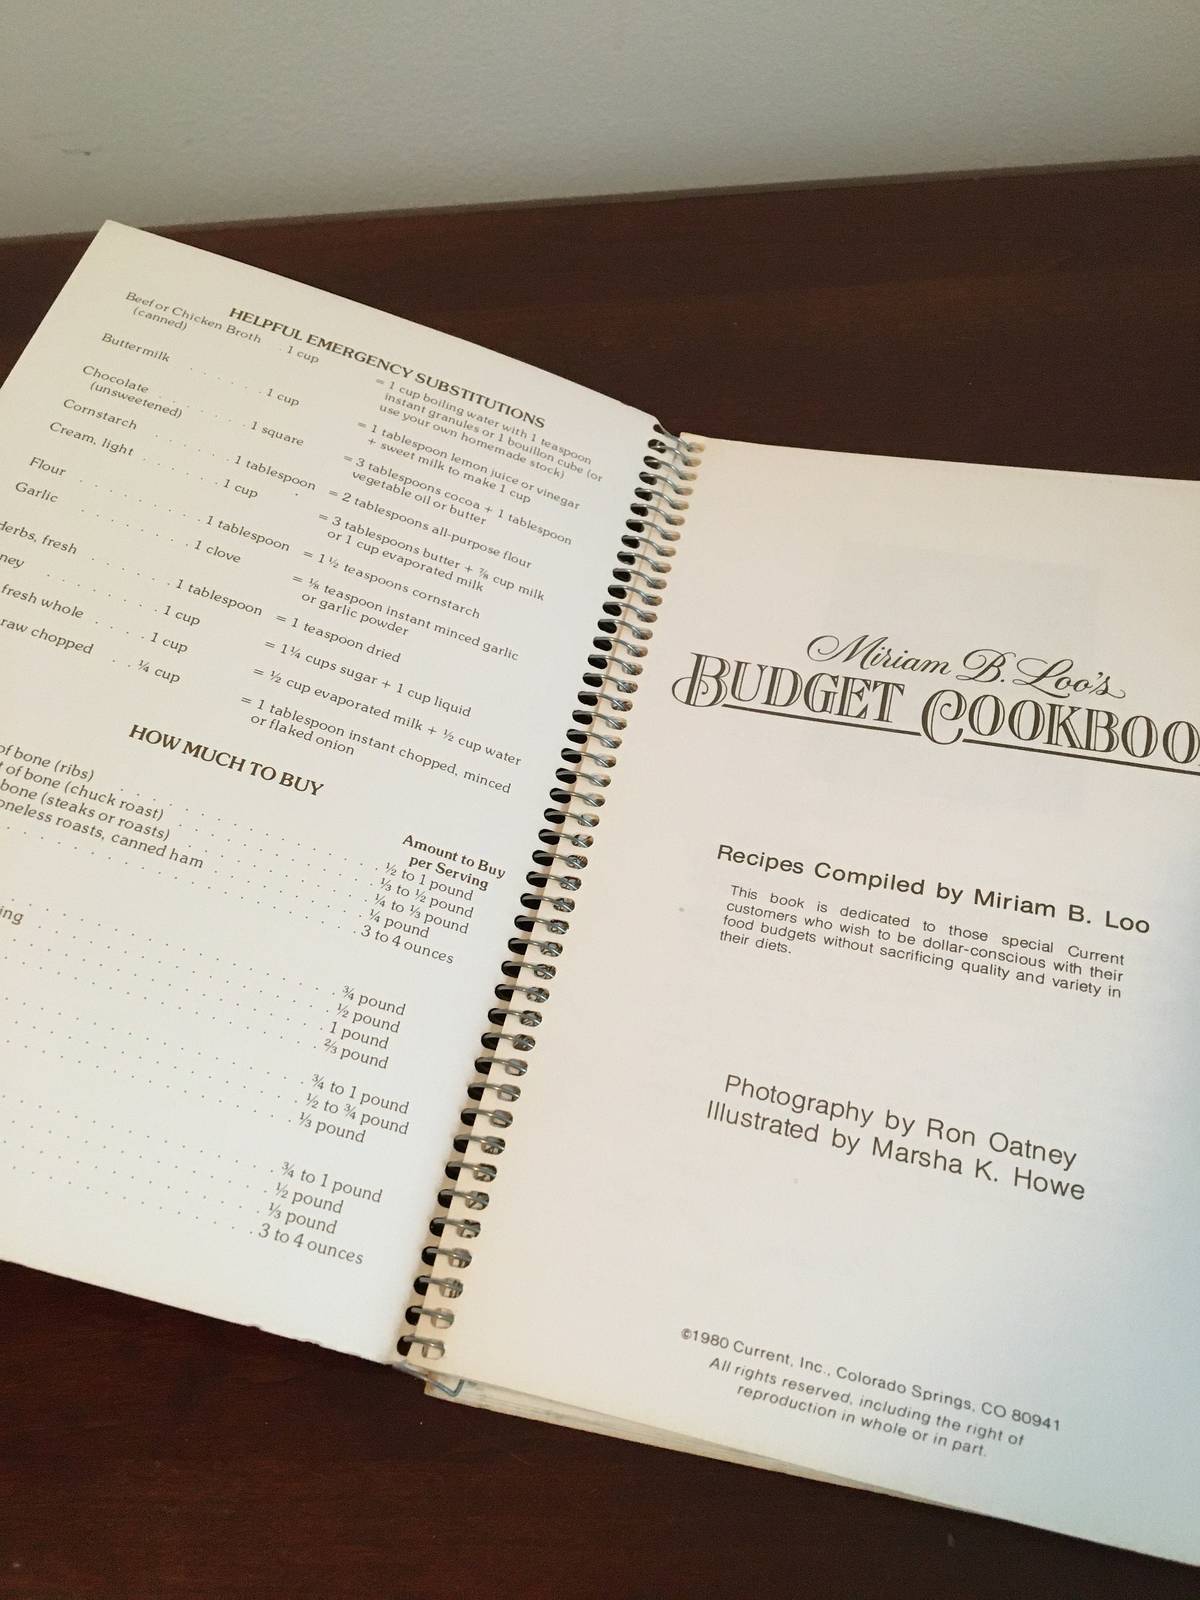 HELPFUL EMERGENCY SUBSTITUTIONS
Beef or Chicken Broth . 1 cup = 1 cup boiling water with 1 teaspoon
(canned) instant granules or 1 bouillon cube (or
use your own homemade stock)
Buttermilk . . . . . . 1 cup = 1 tablespoon lemon juice or vinegar
+ sweet milk to make 1 cup
Chocolate . . . . . . . 1 square = 3 tablespoons cocoa + 1 tablespoon
(unsweetened) vegetable oil or butter
Cornstarch . . . . . . 1 tablespoon = 2 tablespoons all-purpose flour
Cream, light . . . . . . 1 cup = 3 tablespoons butter + ⅞ cup milk
or 1 cup evaporated milk
Flour . . . . . . . . 1 tablespoon = 1½ teaspoons cornstarch
Garlic . . . . . . . . 1 clove = ⅛ teaspoon instant minced garlic
or garlic powder
Herbs, fresh . . . . . . 1 tablespoon = 1 teaspoon dried
ney . . . . . . . . 1 cup = 1¼ cups sugar + 1 cup liquid
fresh whole . . . . . 1 cup = ½ cup evaporated milk + ½ cup water
raw chopped . . ¼ cup = 1 tablespoon instant chopped, minced
or flaked onion
HOW MUCH TO BUY
Amount to Buy
per Serving
of bone (ribs) . . . ½ to 1 pound
t of bone (chuck roast) . . . ⅓ to ½ pound
bone (steaks or roasts) . . . ¼ to ⅓ pound
oneless roasts, canned ham . . . ¼ pound
3 to 4 ounces
ing
¾ pound
½ pound
1 pound
⅔ pound
¾ to 1 pound
½ to ¾ pound
⅓ pound
¾ to 1 pound
½ pound
⅓ pound
3 to 4 ounces
Miriam B. Loo's
BUDGET COOKBOO
Recipes Compiled by Miriam B. Loo
This book is dedicated to those special Current
customers who wish to be dollar-conscious with their
food budgets without sacrificing quality and variety in
their diets.
Photography by Ron Oatney
Illustrated by Marsha K. Howe
©1980 Current, Inc., Colorado Springs, CO 80941
All rights reserved, including the right of
reproduction in whole or in part.